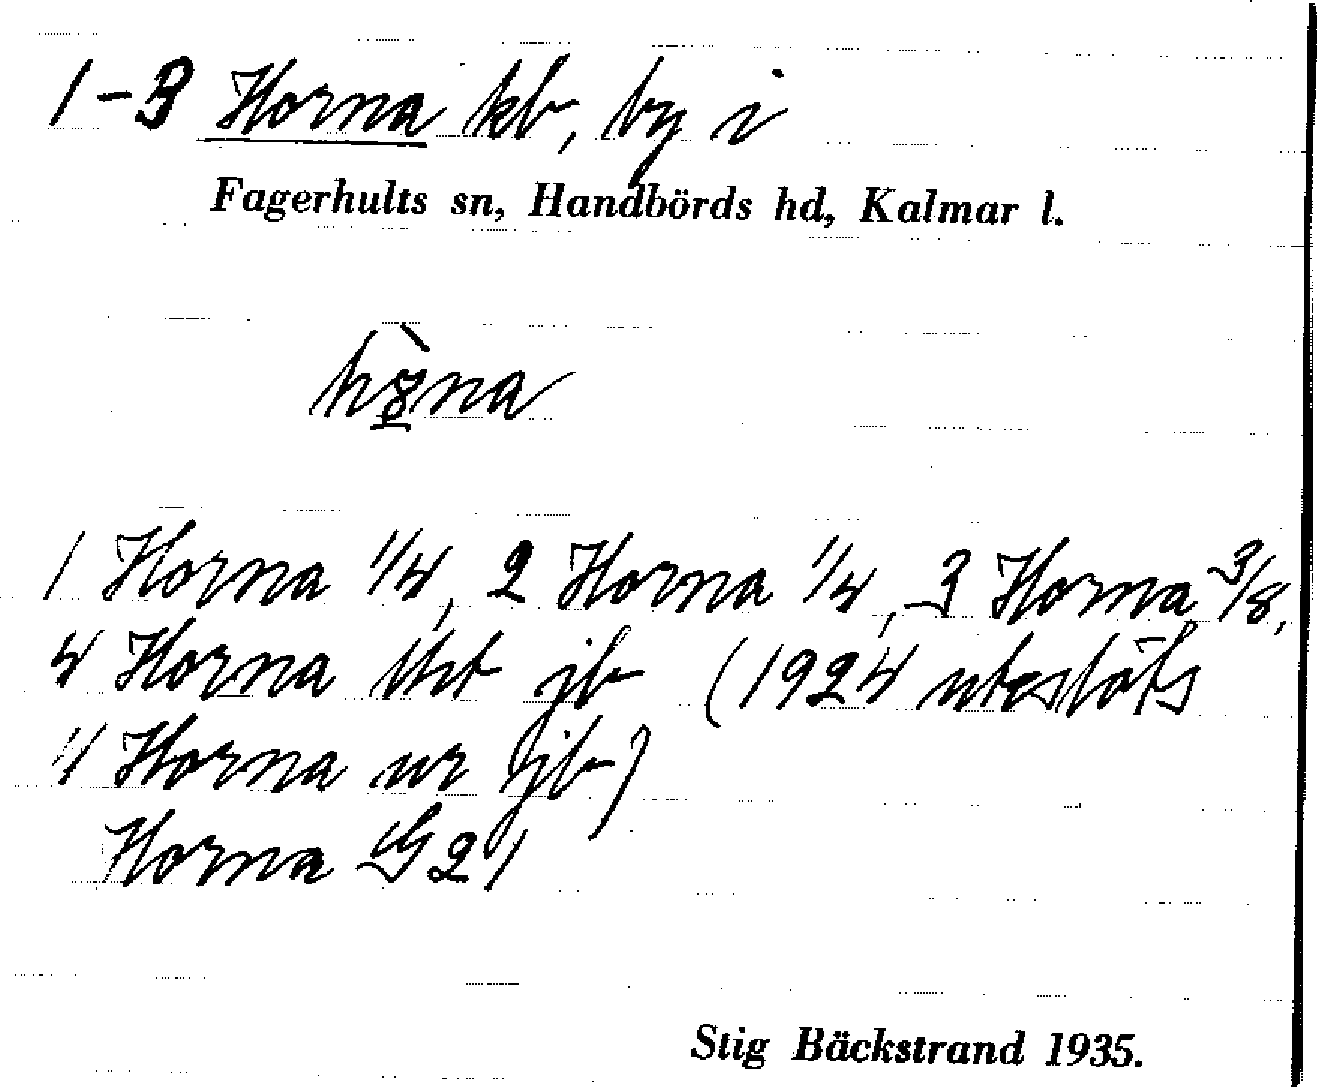 1-3 Horna kb, by i
Fagerhults sn, Handbörds hd, Kalmar l.
1 Horna 1/4, 2 Horna 1/4, 3 Horna 3/8,
4 Horna Utg jb (1924 uteslöts
4 Horna ur jb)
Horna G21
Stig Bäckstrand 1935.